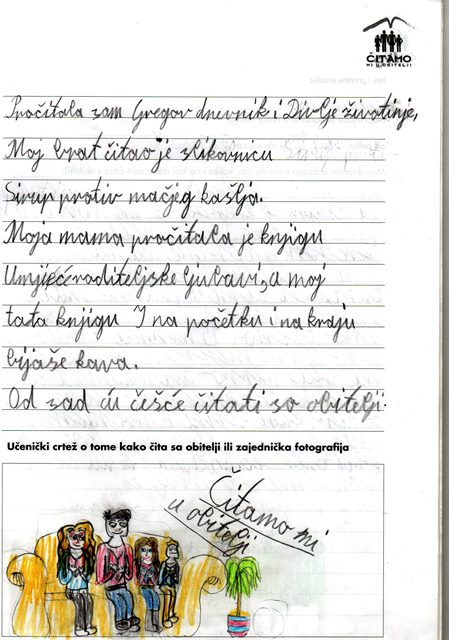 ČITAMO
MI U OBITELJI
Pročitala sam Gregov dnevnik i Divlje životinje,
Moj brat čitao je slikovnicu
Sirup protiv mačjeg kašlja.
Moja mama pročitala je knjigu
Umijeće roditeljske ljubavi, a moj
tata knjigu I na početku i na kraju
bijaše kava.
Od sad ću češće čitati sa obitelji.
Učenički crtež o tome kako čita sa obitelji ili zajednička fotografija
Čitamo mi
u obitelji